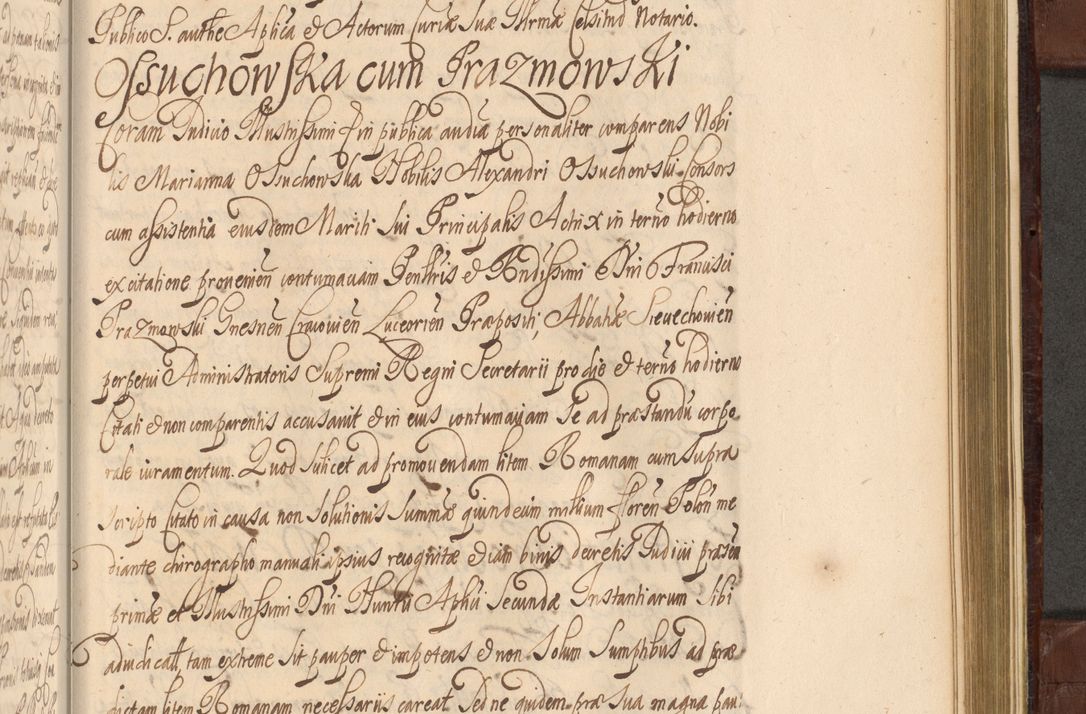 Publico S. authe Aplica et Actorum Curiæ Suæ Illrmæ Celsitnd Notario.
Ossuchowska cum Prazmowski
Coram Judicio Illustrissimi &c in publica audia personaliter comparens Nobi
lis Marianna Ossuchowska Nobilis Alexandri Ossuchowski Consors
cum assistentia eiusdem Mariti sui Principalis Actrix in termo hodierno
ex citatione provenien contumaciam Perillris et Rndissimi Dni Francisci
Prazmowski Gnesnen Cracovien Luceorien Præpositi, Abbatiæ Sieciechovien
perpetui Administratoris Supremi Regni Secretarii pro die et termo hodierno
Citati et non comparentis accusavit et in eius contumaciam Se ad præstandū corpo
rale iuramentum. Quod scilicet ad promovendam litem Romanam cum supra
scripto Citato in causa non solutionis summæ quindecim millium floren Polon me
diante chirographo manuali ipsius recognitæ etiam binis decretis Judicii præsen
primæ et Illustrissimi Dni Nuntii Aplici secundæ Instantiarum sibi
adiudicatt, tam extreme sit pauper et impotens et non solum sumptibus ad præ
dictam litem Romanam necessariis careat, sed ne quidem præ sua magna pau